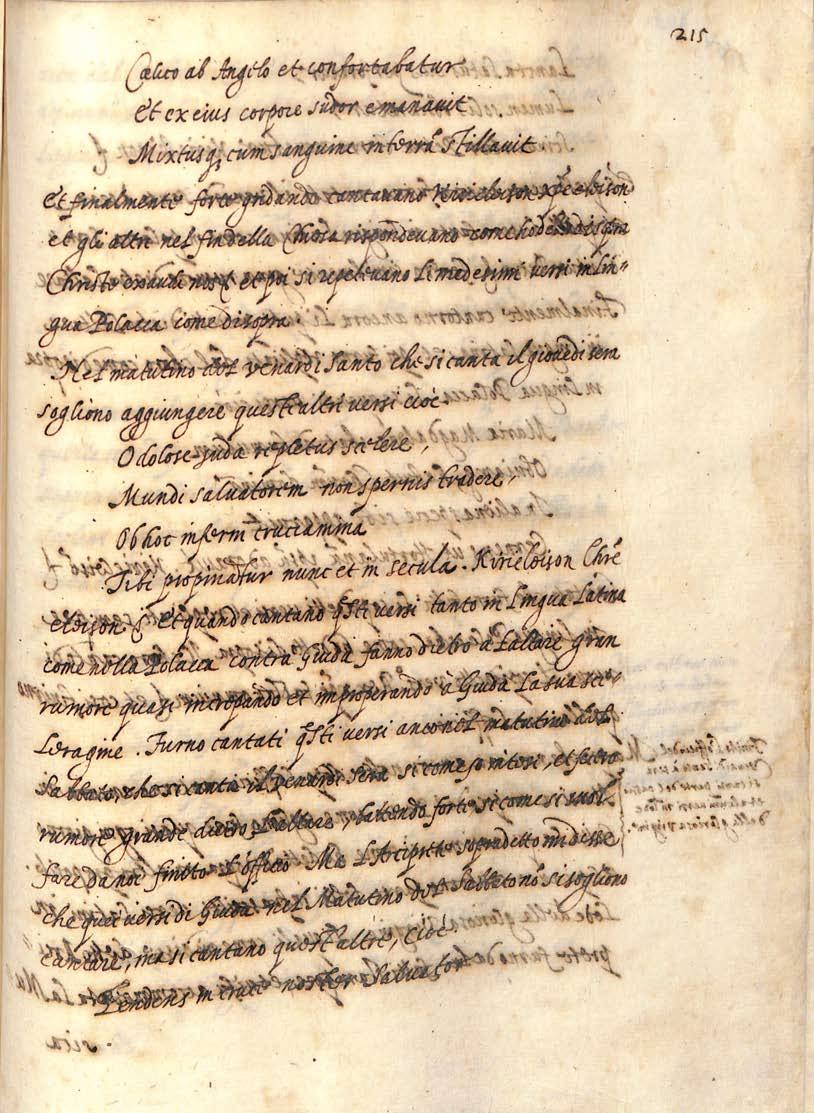 215
Cœlico ab Angelo et confortabatur
Et ex eius corpore sudor emanavit
Mixtusq; cum sanguine in terrã stillavit
Et finalmente forte gridando cantavano Kirieleison xp̃e eleison
et gli altri nel fin della Chiesa rispondevano come ho detto disopra
Christe exaudi nos et poi si repetevano li medesimi versi in lin=
gua Polacca come disopra
Nel matutino del Venardi Santo che si canta il giovedi sera
sogliono aggiungere questi altri versi cioè
O dolose Juda repletus scelere,
Mundi salvatorem non spernis tradere,
Ob hoc inferni cruciamina
Tibi propinatur nunc et in secula. Kirieleison Chrẽ
eleison Et quando cantano q̃sti versi tanto in Lingua Latina
come nella Polacca contra Giuda fanno dietro à l'altare gran
rumore quasi increpando et improperando à Giuda la sua sce=
leragine. Furno cantati q̃sti versi anco nel matutino del
Sabbato, che si canta il Venardi sera si come scritori, et fecero
rumore grande dietro l'altare, battendo forte si come si suol
fare da noi finito l'officio Ma l'Arciprete sopradetto mi disse
che quei versi di Giuda nel Matutino del Sabbato nõ si sogliono
cantare, ma si cantano quest'altri, cioè
Pendens in cruce noster Salvator
finito l'officio del
Venardi Santo à sera
si cantò parte del
et alcuni versi in lode
della gloriosa vergine.